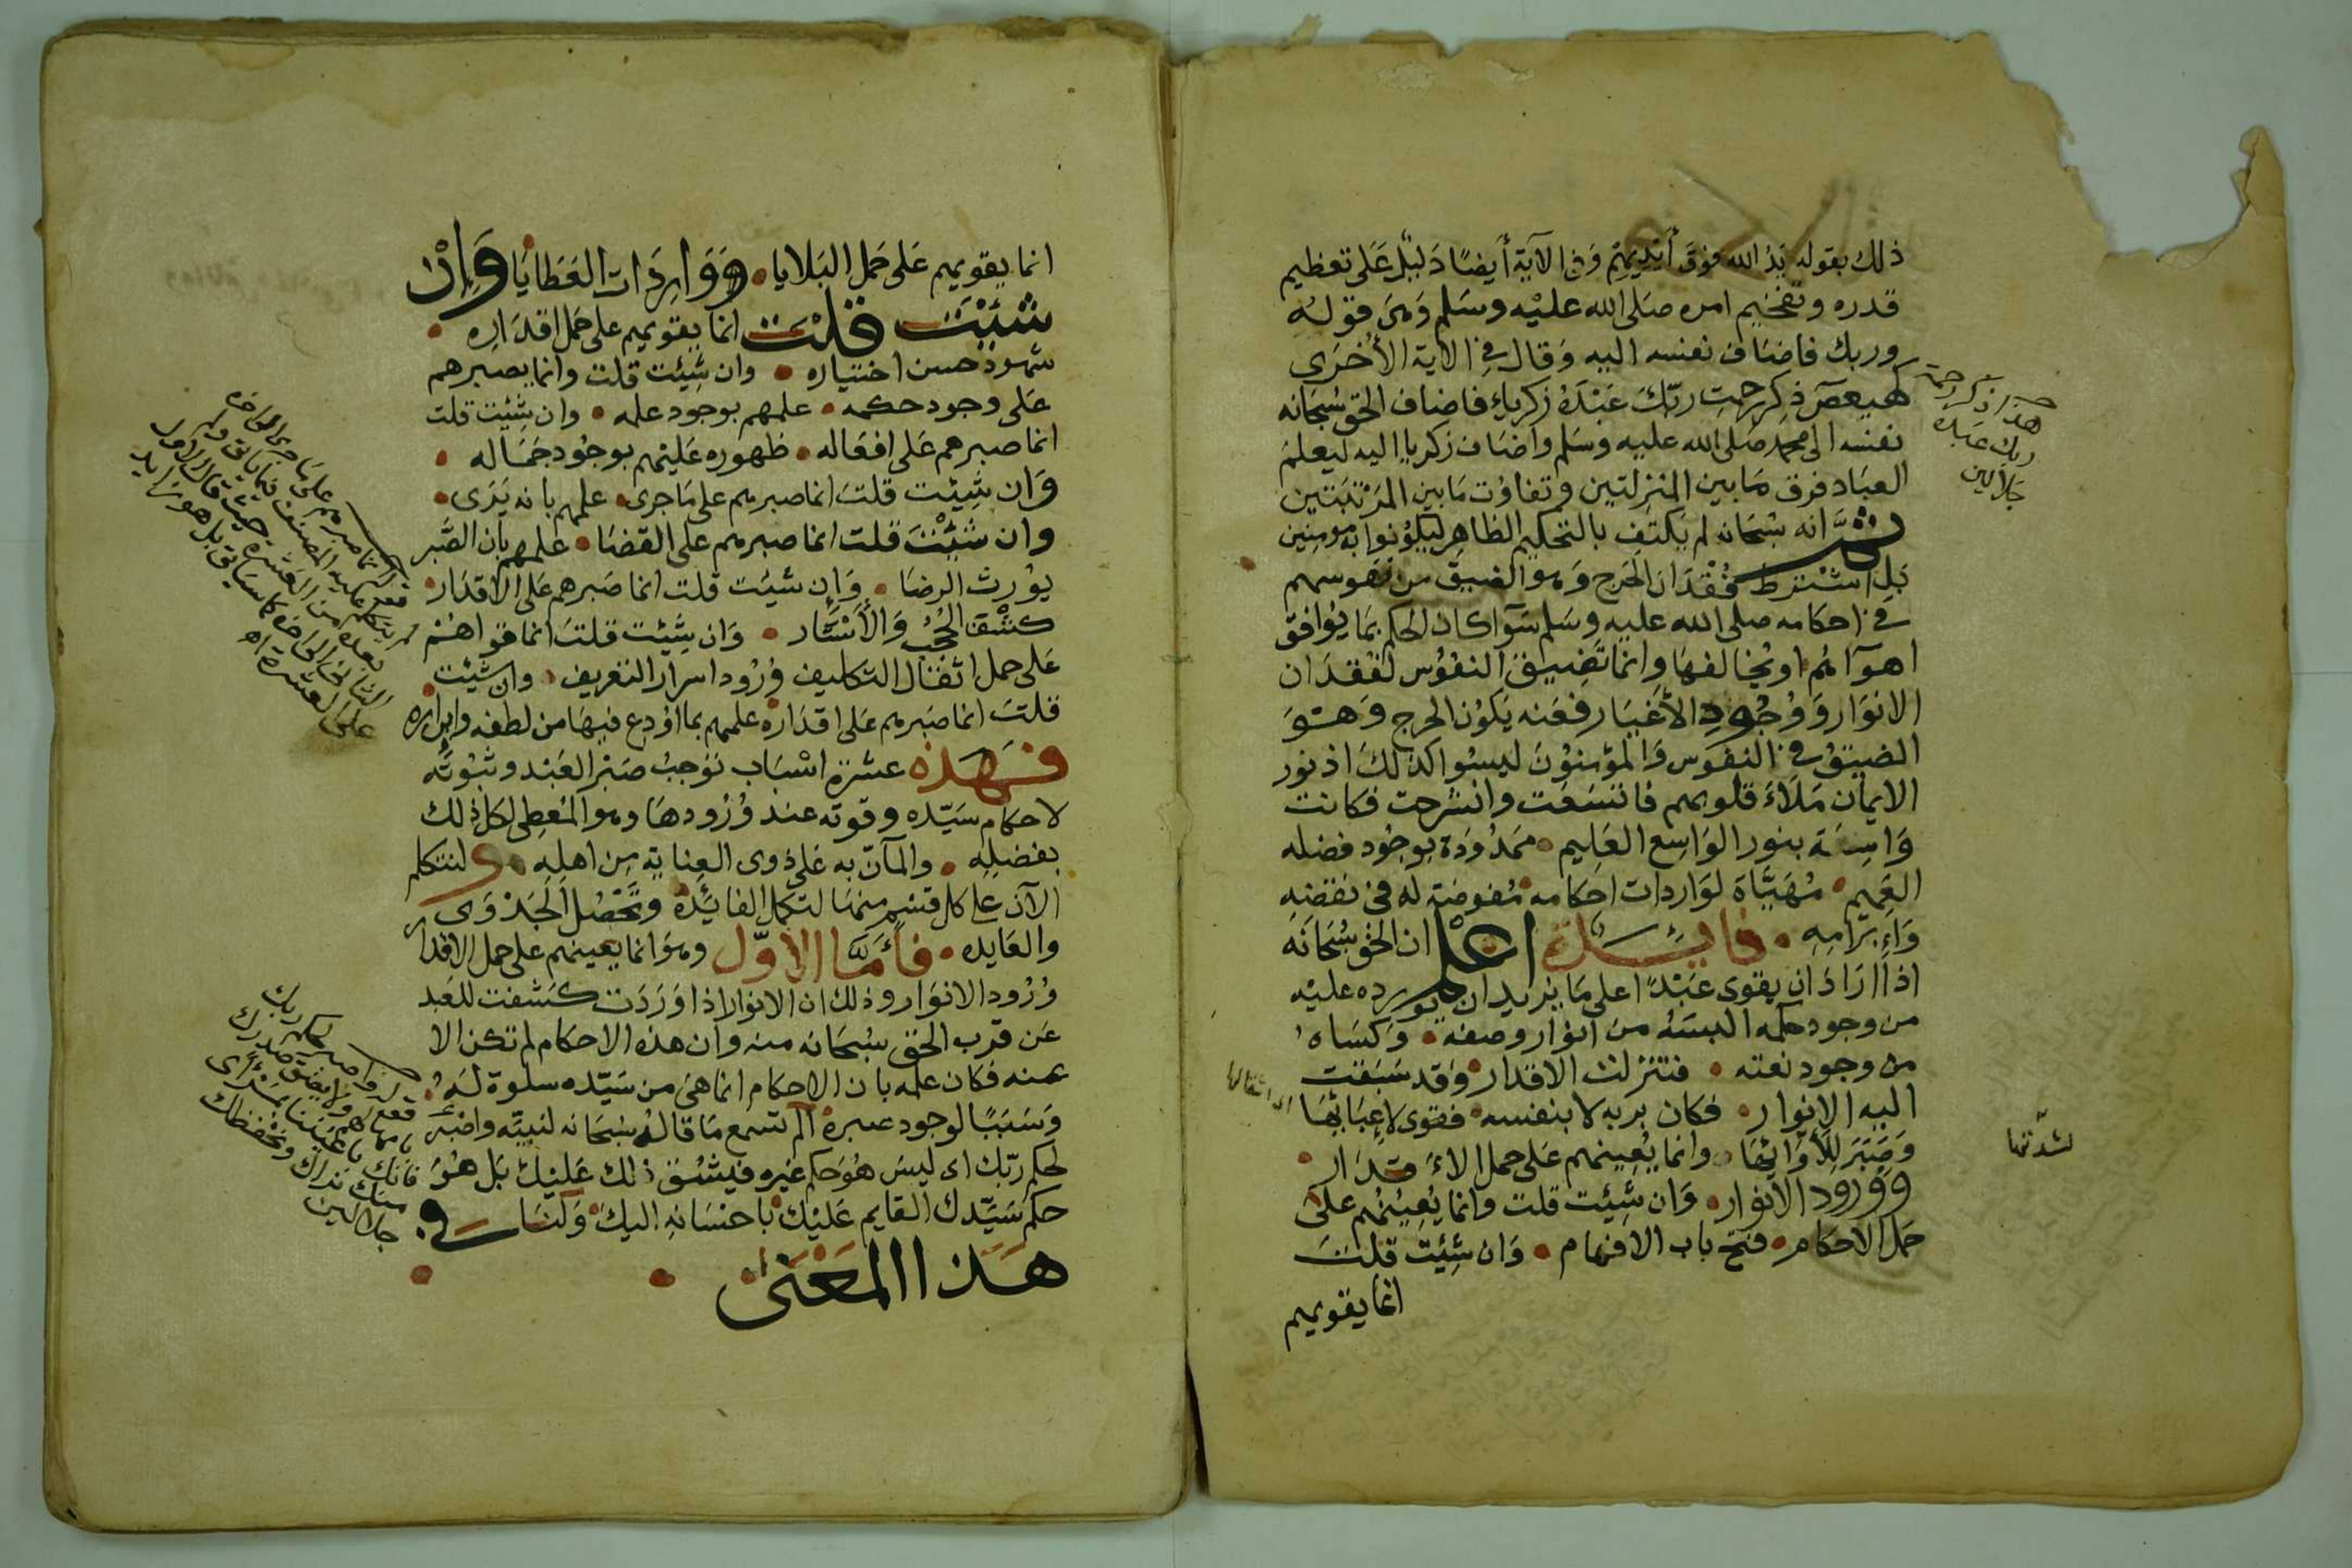 ذلك بقوله يد الله فوق أيديهم وفي الآية أيضا دليل على تعظيم
قدره وتفخيم امره صلى الله عليه وسلم وهي قوله
وربك فاضاف نفسه اليه وقال في الاية الأخرى
كهيعص ذكر رحمت ربك عبده زكرياء فاضاف الحق سبحانه
نفسه الى محمد صلى الله عليه وسلم واضاف زكريا اليه ليعلم
العباد فرق ما بين المنزلتين وتفاوت ما بين المرتبتين
ثم انه سبحانه لم يكتف بالتحكيم الظاهر ليكونوا به مومنين
بل اشترط فقدان الحرج وهو الضيق من نفوسهم
في احكامه صلى الله عليه وسلم سوآ كان الحكم بما يوافق
اهوآءهم او يخالفها وانما تضيق النفوس لفقدان
الانوار ووجود الأغيار فعنه يكون الحرج وهو
الضيق في النفوس والمؤمنون ليسوا كذلك اذ نور
الايمان ملاء قلوبهم فاتسعت وانشرحت فكانت
واسعة بنور الواسع العليم ممدودة بوجود فضله
العميم مهياة لواردات احكامه مفوضة له في نقضه
وابرامه فايدة اعلم ان الحق سبحانه
اذا اراد ان يقوى عبدا على ما يريد ان يورده عليه
من وجود حكمه البسه من انوار وصفه وكساه
من وجود نعته فتنزلت الاقدار وقد سبقت
اليه الانوار فكان بربه لا بنفسه فقوى لاعبائها
وصبر للأوائها وانما يعينهم على حمل الاقدار
وورود الانوار وان شئت قلت وانما يعينهم على
حمل الاحكام فتح باب الافهام وان شئت قلت
انما يقويهم
هذا ذكر رحمة
ربك عبده
جلالين
لشدتها
اى اثقالها
انما يقويهم على حمل البلايا وواردات العطايا وان
شئت قلت انما يقويهم على حمل اقداره
شهود حسن اختياره وان شئت قلت وانما يصبرهم
على وجود حكمه علمهم بوجود علمه وان شئت قلت
انما صبرهم على افعاله ظهوره عليهم بوجود جماله
وان شئت قلت انما صبرهم على ما جرى علمهم بانه يرى
وان شئت قلت انما صبرهم على القضا علمهم بان الصبر
يورث الرضا وان شئت قلت انما صبرهم على الاقدار
كشف الحجب والأستار وان شئت قلت انما قواهم
على حمل اثقال التكاليف ورود اسرار التعريف وان شئت
قلت انما صبرهم على اقداره علمهم بما اودع فيها من لطفه وابراره
فهذه عشرة اسباب توجب صبر العبد وثبوته
لاحكام سيده وقوته عند ورودها وهو المعطى لكل ذلك
بفضله والمآن به على ذوى العناية من اهله ولنتكلم
الآن على كل قسم منها لتكمل الفائدة وتحصل الجدوى
والعايده فأما الاول وهو انما يعينهم على حمل الاقدار
ورود الانوار وذلك ان الانوار اذا وردت كشفت للعبد
عن قرب الحق سبحانه منه وان هذه الاحكام لم تكن الا
عنه فكان علمه بان الاحكام انما هي من سيده سلوة له
وسببا لوجود صبره الم تسمع ما قاله سبحانه لنبيه واصبر
لحكم ربك اى ليس هو حكم غيره فيشق ذلك عليك بل هو
حكم سيدك القايم عليك باحسانه اليك ولنا في
هذا المعنى
قوله انما صبرهم على ما جرى الخ هذه
لم يتكلم عليه المصنف فيما ياتي ولم
يعده من العشرة حيث قال الاول
الثاني الخ
على العشرة اه
قوله واصبر لحكم ربك
بامهالهم ولا يضق صدرك
فانك باعيننا بمرأى
منا نراك ونحفظك
جلالين